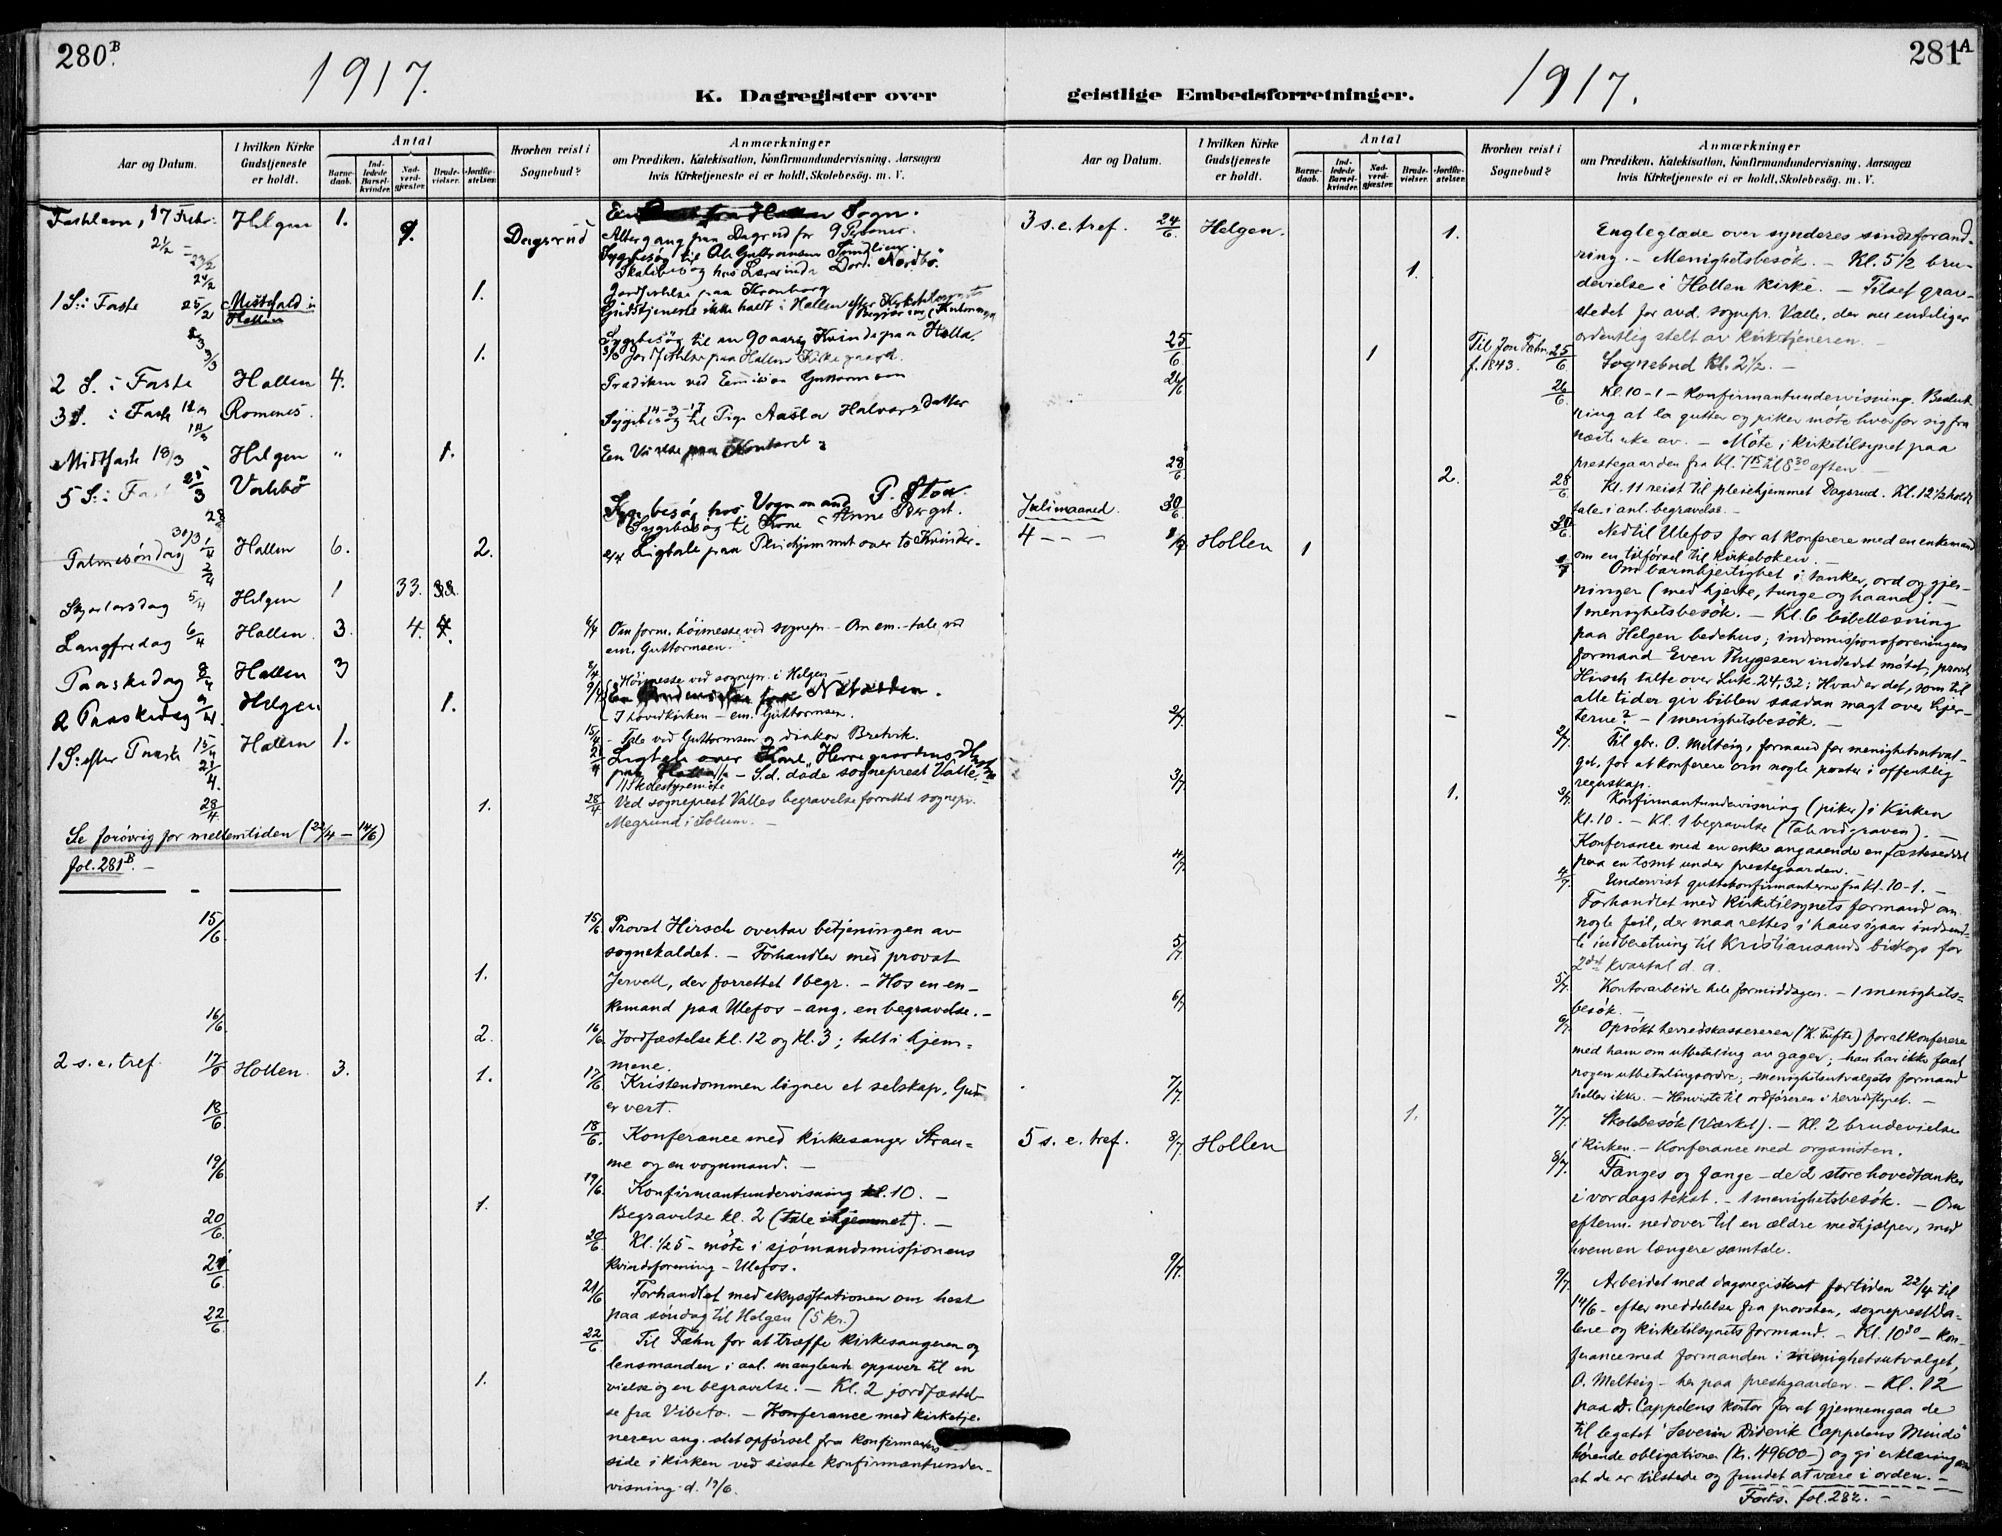 280.B
1917.
K. Dagregister over
Aar og Datum.
I hvilken Kirke Gudstjeneste er holdt.
Antal
Barne-daab.
Ind-ledede Barsel-kvinder.
Nad-verd-gjæster.
Brude-vielser.
Jordfæ-stelser.
Hvorhen reist i Sognebud?
Anmærkninger
om Prædiken, Katekisation, Konfirmandundervisning, Aarsagen
hvis Kirketjeneste ei er holdt, Skolebesøg, m. V.
Fastelavn, 17 Febr. Helgen 1. 9. Dagsrud
Sogn.
Altergang paa Dagsrud for 9 Personer.
Sygebesøg til Ole Guttormsen
Skolebesøg hos Lærerinde Nordbö.
1 S. i Faste 25/2 Hollen 1.
Jordfæstelse paa Kronborg
Gudstjeneste ikke holdt i Hollen efter
Sygebesøg til en 90 aarig Kvinde paa Holla.
1. Jordfæstelse paa Hollen Kirkegaard.
2 S. i Faste Hollen 4. Prædiken ved Guttormsen
3 S. i Faste Romenes. 14-3-17
Sygebesøg til Pige Aasta Halvorsdatter
Midtfaste 18/3 Helgen " 1. En Vielse paa Kontoret
5 S. i Faste 25/3
Sygebesøg hos Vognmand P. Stoa.
Sygebesøg til Kone Anne Berget.
Palmesøndag 1/4 Hollen 6. 2. Ligtale paa Pleiehjemmet over to Kvinder.
Skjærtorsdag 5/4 Helgen 1 33.
Langfredag 6/4 Hollen. 3. 4. 6/4 Om form. høimesse ved sognepr. - Om em. - tale ved
em. Guttormsen.
Paaskedag 8/4 Hollen 3 8/4 Høimesse ved sognepr. i Helgen -
2 Paaskedag 9/4 Helgen 1. 9/4
I hovedkirken - em. Guttormsen.
1 S. efter Paaske 15/4 Hollen 1. 15/4 - Tale ved Guttormsen og diakon Bretvik.
Ligtale over
- S.d. døde sogneprest Valle.
28/4 1. 28/4 Ved sogneprest Valles begravelse forrettet sognepr.
Megrund i Solum. -
Se forövrig for mellemtiden (22/4 - 14/6)
fol. 281B. -
15/6 15/6 Provst Hirsch overtar betjeningen av
sognekaldet. - Forhandler med provst
1. Jervell, der forrettet 1 begr. - Hos en en-
kemand paa Ulefos - ang. en begravelse. -
16/6 2. 16/6 Jordfæstelse kl. 12 og kl. 3; talt i hjem-
mene.
2 s. e. tref. 17/6 Hollen. 3. 1. 17/6 Kristendommen ligner et selskap, Gud
er vert.
18/6 18/6. Konferance med kirkesanger Strau-
me og en vognmand. -
19/6 19/6 Konfirmantundervisning kl. 10. -
1. Begravelse kl. 2 (tale i hjemmet). -
20/6 20/6 Kl. 1/2 5 - möte i sjömandsmissionens
kvindeforening - Ulefos.
21/6 21/6 Forhandlet med skysstationen om hest
paa söndag til Helgen (5 kr.)
22/6 22/6 Til Fæhn for at træffe kirkesangeren og
lensmanden i anl. manglende opgaver til en
1. vielse og en begravelse. - Kl. 2 jordfæstel-
se fra Vibeto. - Konferance med kirketje-
neren ang. slet opförsel fra konfirmanters
side i kirken ved sisste konfirmantunder-
visning d. 19/6.
281A
1917.
geistlige Embedsforretninger.
Aar og Datum.
I hvilken Kirke Gudstjeneste er holdt.
Antal
Barne-daab.
Ind-ledede Barsel-kvinder.
Nad-verd-gjæster.
Brude-vielser.
Jordfæ-stelser.
Hvorhen reist i Sognebud?
Anmærkninger
om Prædiken, Katekisation, Konfirmandundervisning, Aarsagen
hvis Kirketjeneste ei er holdt, Skolebesøg, m. V.
3 s. e. tref. 24/6. Helgen. 1. Engleglæde over synderes sindsforand-
1. ring. - Menighetsbesök. - Kl. 5 1/2 bru-
devielse i Hollen kirke. - Tilset grav-
stedet for avd. sognepr. Valle, der nu endeliger
ordentlig stelt av kirketjeneren. -
25/6 1 Til Jon Fæhn f. 1843. 25/6 Sognebud Kl. 2 1/2. -
26/6 26/6. Kl. 10-1 - Konfirmantundervisning. Beslut-
ning at la gutter og piker möte hver for sig fra
næste uke av. - Möte i kirketilsynet paa
prestegaarden fra Kl. 7 15 til 8 30 aften. -
28/6 2. 28/6 Kl. 11 reist til pleiehjemmet Dagsrud. Kl. 12 1/2 holdt
tale i anl. begravelse. -
Julimaaned. 30/6. 30/6. Ned til Ulefos for at konferere med en enkemand
om en tilförsel til kirkeboken. -
4 - - - 1/7 Hollen 1 1/7 Om barmhjertighet i tanker, ord og gjer-
ninger (med hjerte, tunge og haand). -
1 menighetsbesök. - Kl. 6 bibellæsning
paa Helgen bedehus; indremissionsforeningens
formand Even Thygesen indledet mötet, provst
Hirsch talte over Luk. 24,32: Hvad er det, som til
alle tider gir biblen saadan magt over hjer-
terne? - 1 menighetsbesök. -
2/7. - 2/7. Til gbr. O. Melteig, formand for menighetsutval-
get, for at konferere om nogle poster i offentlig
regnskap.
3/7. 1. 3/7. Konfirmantundervisning (piker) i Kirken
kl. 10. - Kl. 1 begravelse (Tale ved graven). -
Konferance med en enke angaaende en fæsteseddel
paa en tomt under prestegaarden. -
4/7. 4/7. Undervist guttekonfirmanterne fra kl. 10-1. -
Forhandlet med kirketilsynets formand om
nogle feil, der maa rettes i hans igaar indsend-
te indberetning til Kristiansands biskop for
2det kvartal d. a.
5/7. 5/7. Kontorarbeide hele formiddagen. - 1 menighets-
besök. -
6/7 6/7. Opsökt herredskassereren (K. Tufte) for at konferere
med ham om utbetaling av gager; han har ikke faat
nogen utbetalingsordre; menighetsutvalgets formand
heller ikke. - Henviste til ordföreren i herredstyret. -
7/7. 1. 7/7. Skolebesök (Værket). - Kl. 2 brudevielse
i kirken. - Konferance med organisten.
5 s. e. tref. 8/7. Hollen 8/7. Fanges og fange - de 2 store hovedtanker
i vor dags tekst. - 1 menighetsbesök. - Om
efterm. nedover til en ældre medhjælper, med
hvem en længere samtale.
9/7. 9/7. Arbeidet med dagsregistret for tiden 22/4 til
14/6 - efter meddelelser fra provsten, sogneprest Da-
lene og kirketilsynets formand. - Kl. 10 30 - kon-
ferance med formanden i menighetsutvalget,
O. Melteig - her paa prestegaarden. - Kl. 12
paa D. Cappelens kontor for at gjennemgaa de
til legatet "Severin Diderik Cappelens Minde"
hörende obligationer (kr. 49600-) og gi erklæring om
at de er tilstede og fundet at være i orden. -
Forts. fol. 282. -